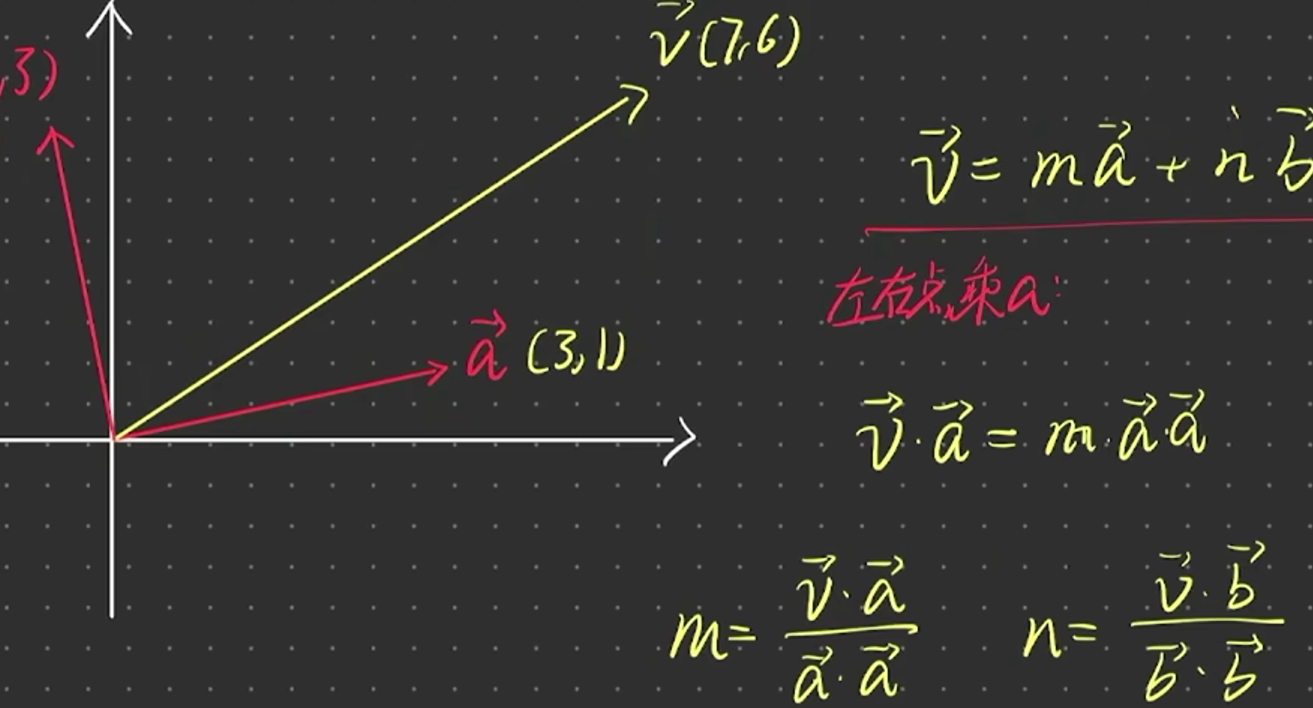 v⃗(7,6)
,3)
v⃗ = ma⃗ + nb⃗
左右点乘a:
a⃗ (3,1)
v⃗·a⃗ = m·a⃗·a⃗
m= v⃗·a⃗ / a⃗·a⃗
n= v⃗·b⃗ / b⃗·b⃗